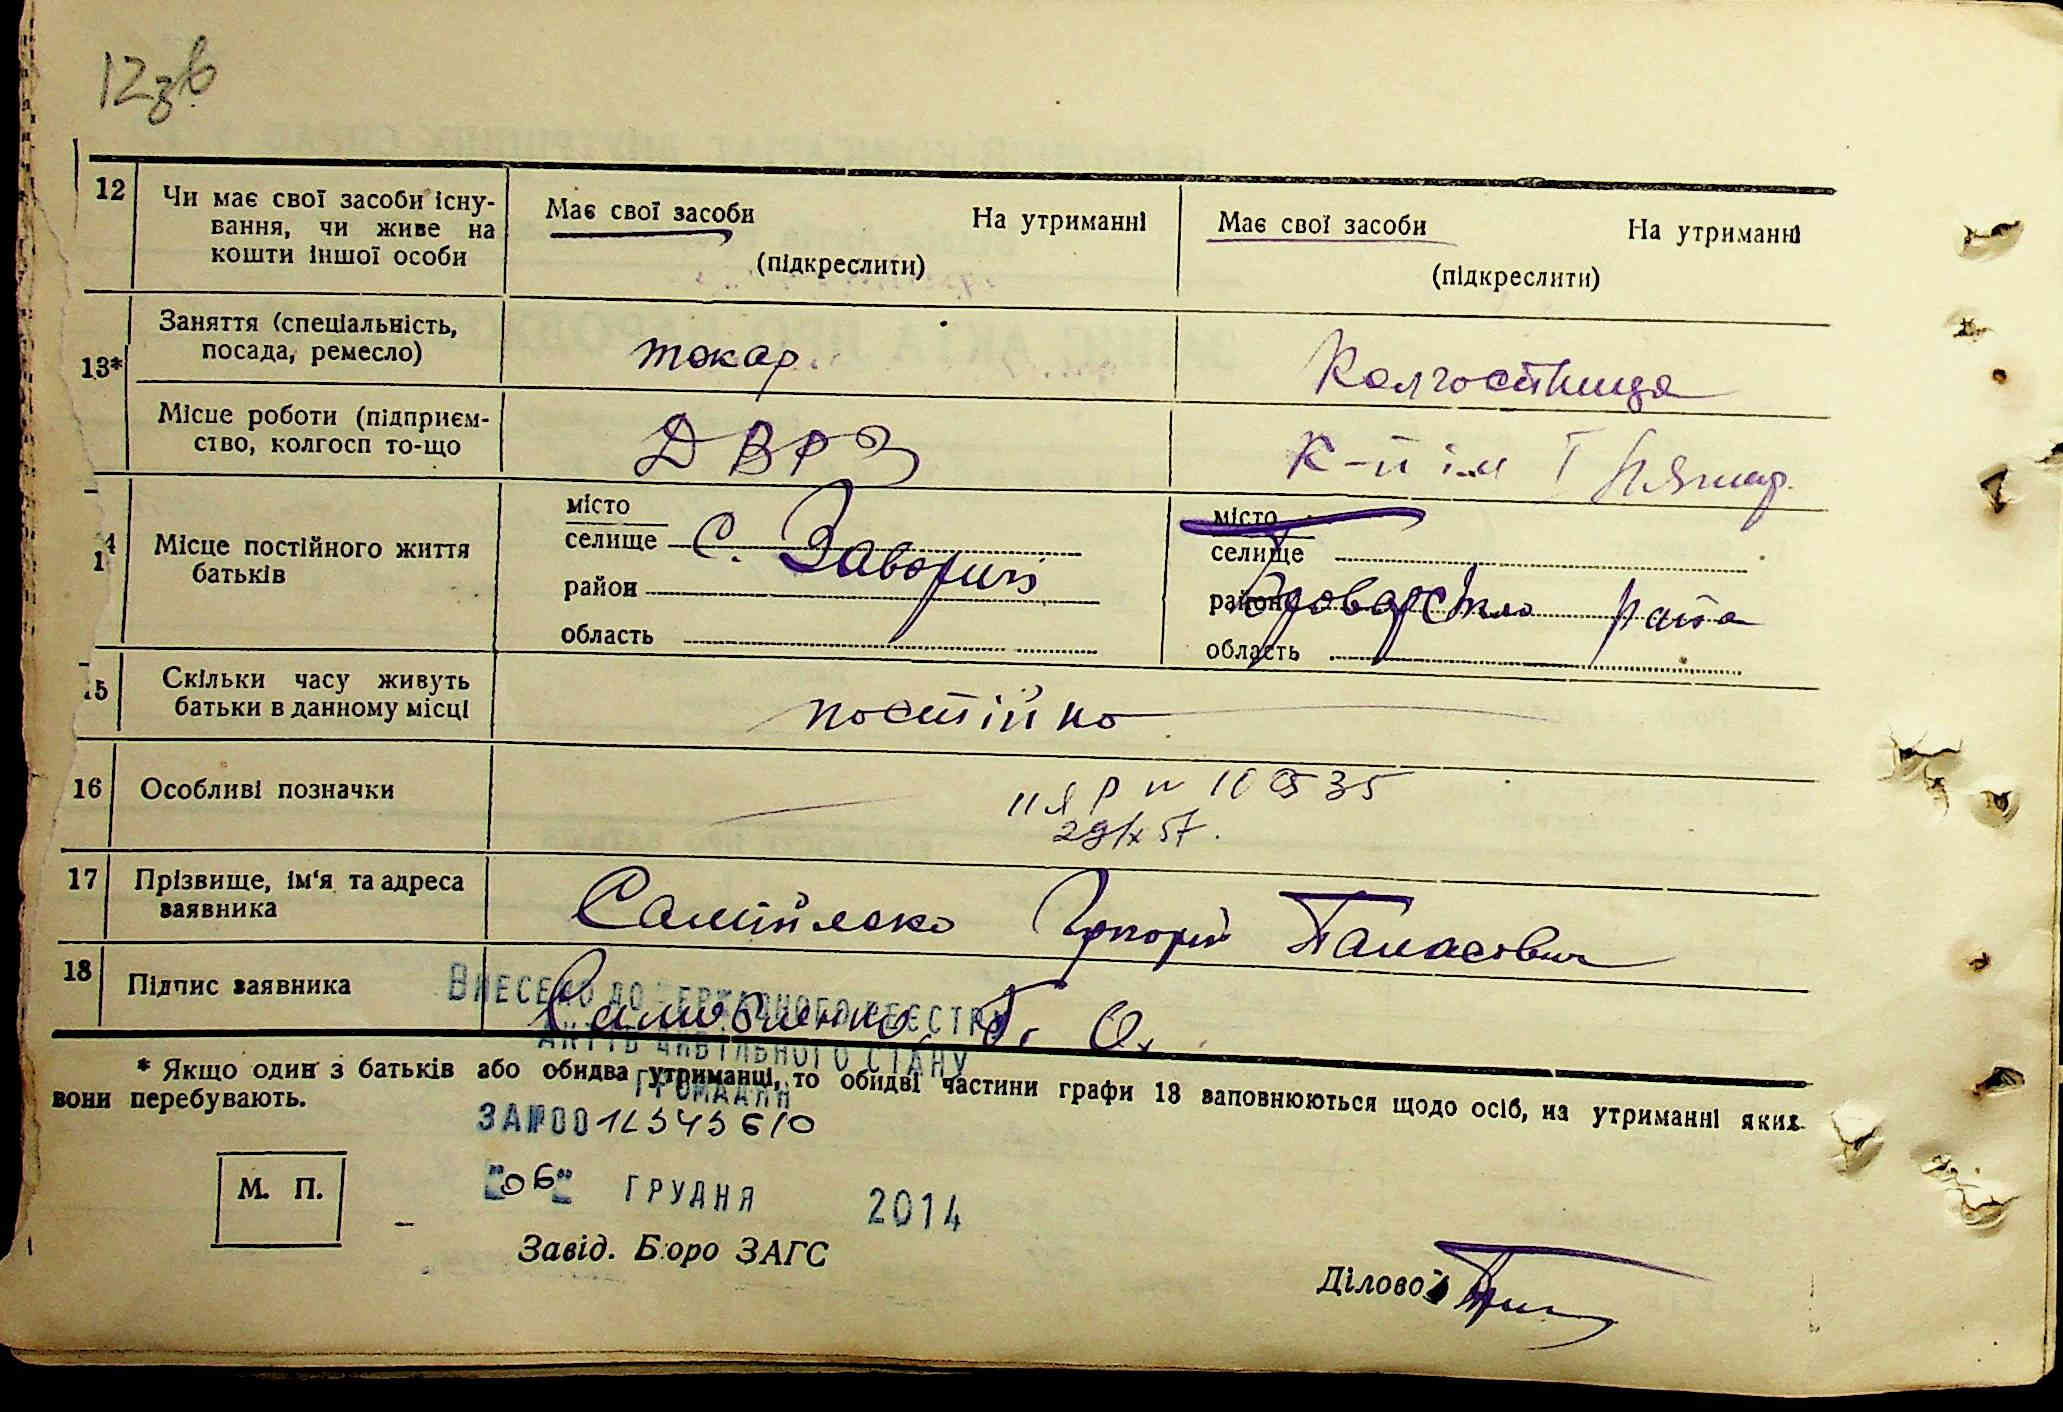 12зв
12 Чи має свої засоби існу-
вання, чи живе на
кошти іншої особи
Має свої засоби На утриманні
(підкреслити)
Має свої засоби На утриманні
(підкреслити)
13* Заняття (спеціальність,
посада, ремесло)
токар.
Колгоспниця
Місце роботи (підприєм-
ство, колгосп то-що
ДВРЗ
к-п ім
14 Місце постійного життя
батьків
місто
селище с. Заворичі
район
область
місто
селище
район Броварського р-на
область
15 Скільки часу живуть
батьки в данному місці
постійно
16 Особливі позначки
17 Прізвище, ім'я та адреса
заявника
Самійленко Григорій Панасович
18 Підпис заявника
Внесено до державного реєстру
актів цивільного стану
громадян
* Якщо один з батьків або обидва утриманці, то обидві частини графи 13 заповнюються щодо осіб, на утриманні яких
вони перебувають.
ЗА №00
М. П.
"06" ГРУДНЯ 2014
Завід. Бюро ЗАГС
Діловод